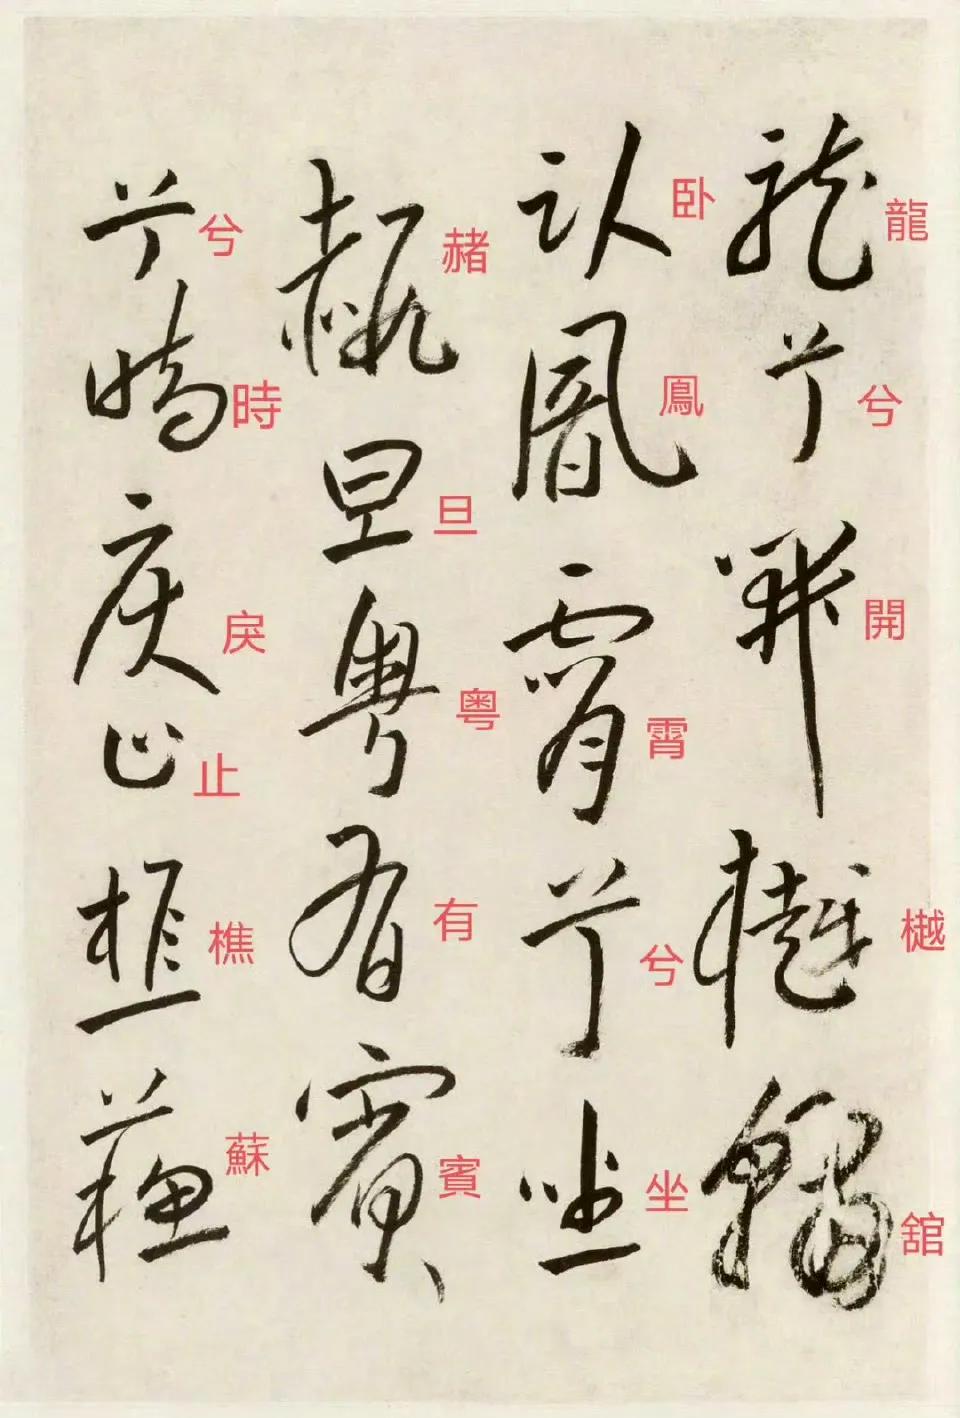 龍兮開樾舘
卧鳳霄兮坐
赭旦粤有賓
兮時戾止樵蘇